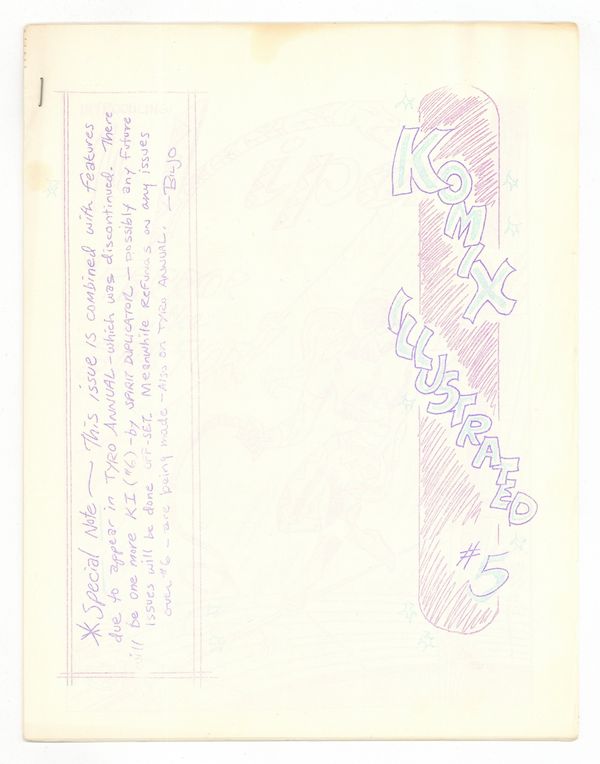 KOMIX
ILLUSTRATED
#5
* Special Note — This issue is combined with features
due to appear in TYRO ANNUAL - which was discontinued. There
will be one more KI (#6) - by SPIRIT DUPLICATOR — possibly any future
issues will be done OFF-SET. Meanwhile Refunds on any issues
over #6 - are being made - Also on TYRO ANNUAL. — BilJo